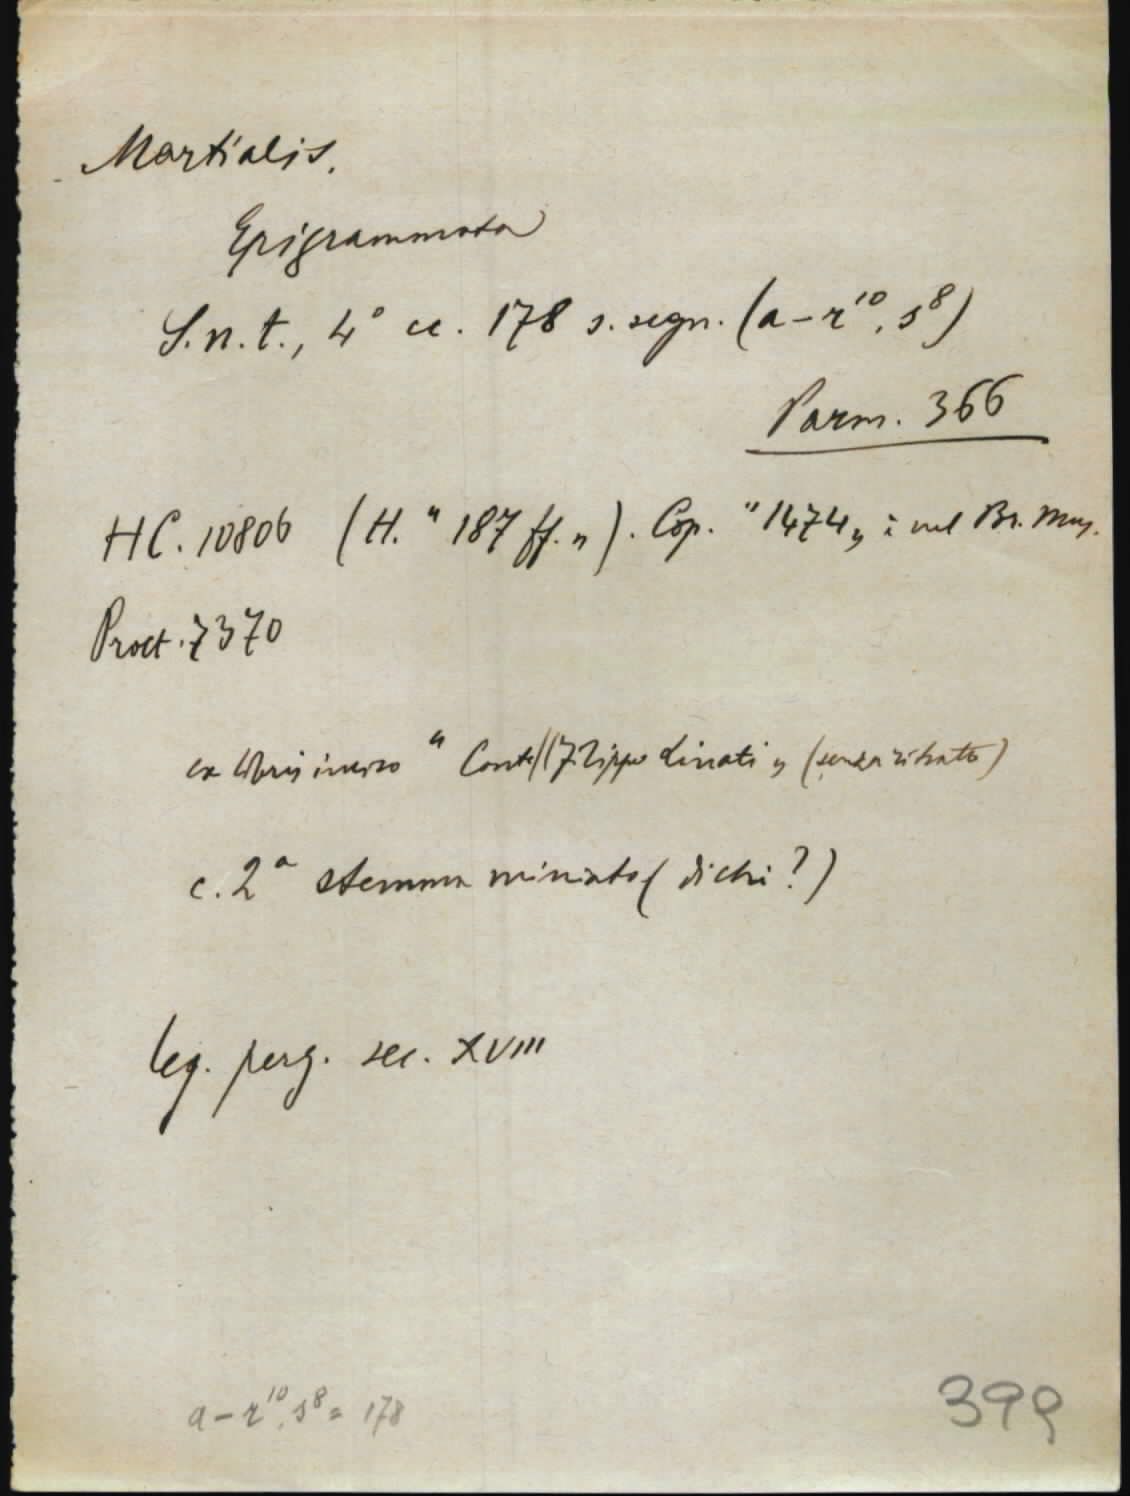 Martialis.
Epigrammata
S.n.t., 4° cc. 178 s. segn. (a-r¹⁰, s⁸)
Parm. 366
HC. 10806 (H. "187 ff.„). Cop. "1474„ è nel Br. Mus.
Proct. 7370
ex libris inciso "Conte Filippo Linati„ (senza ritratto)
c. 2ª stemma miniato (di chi?)
leg. perg. sec. XVIII
a-r¹⁰, s⁸ = 178
399